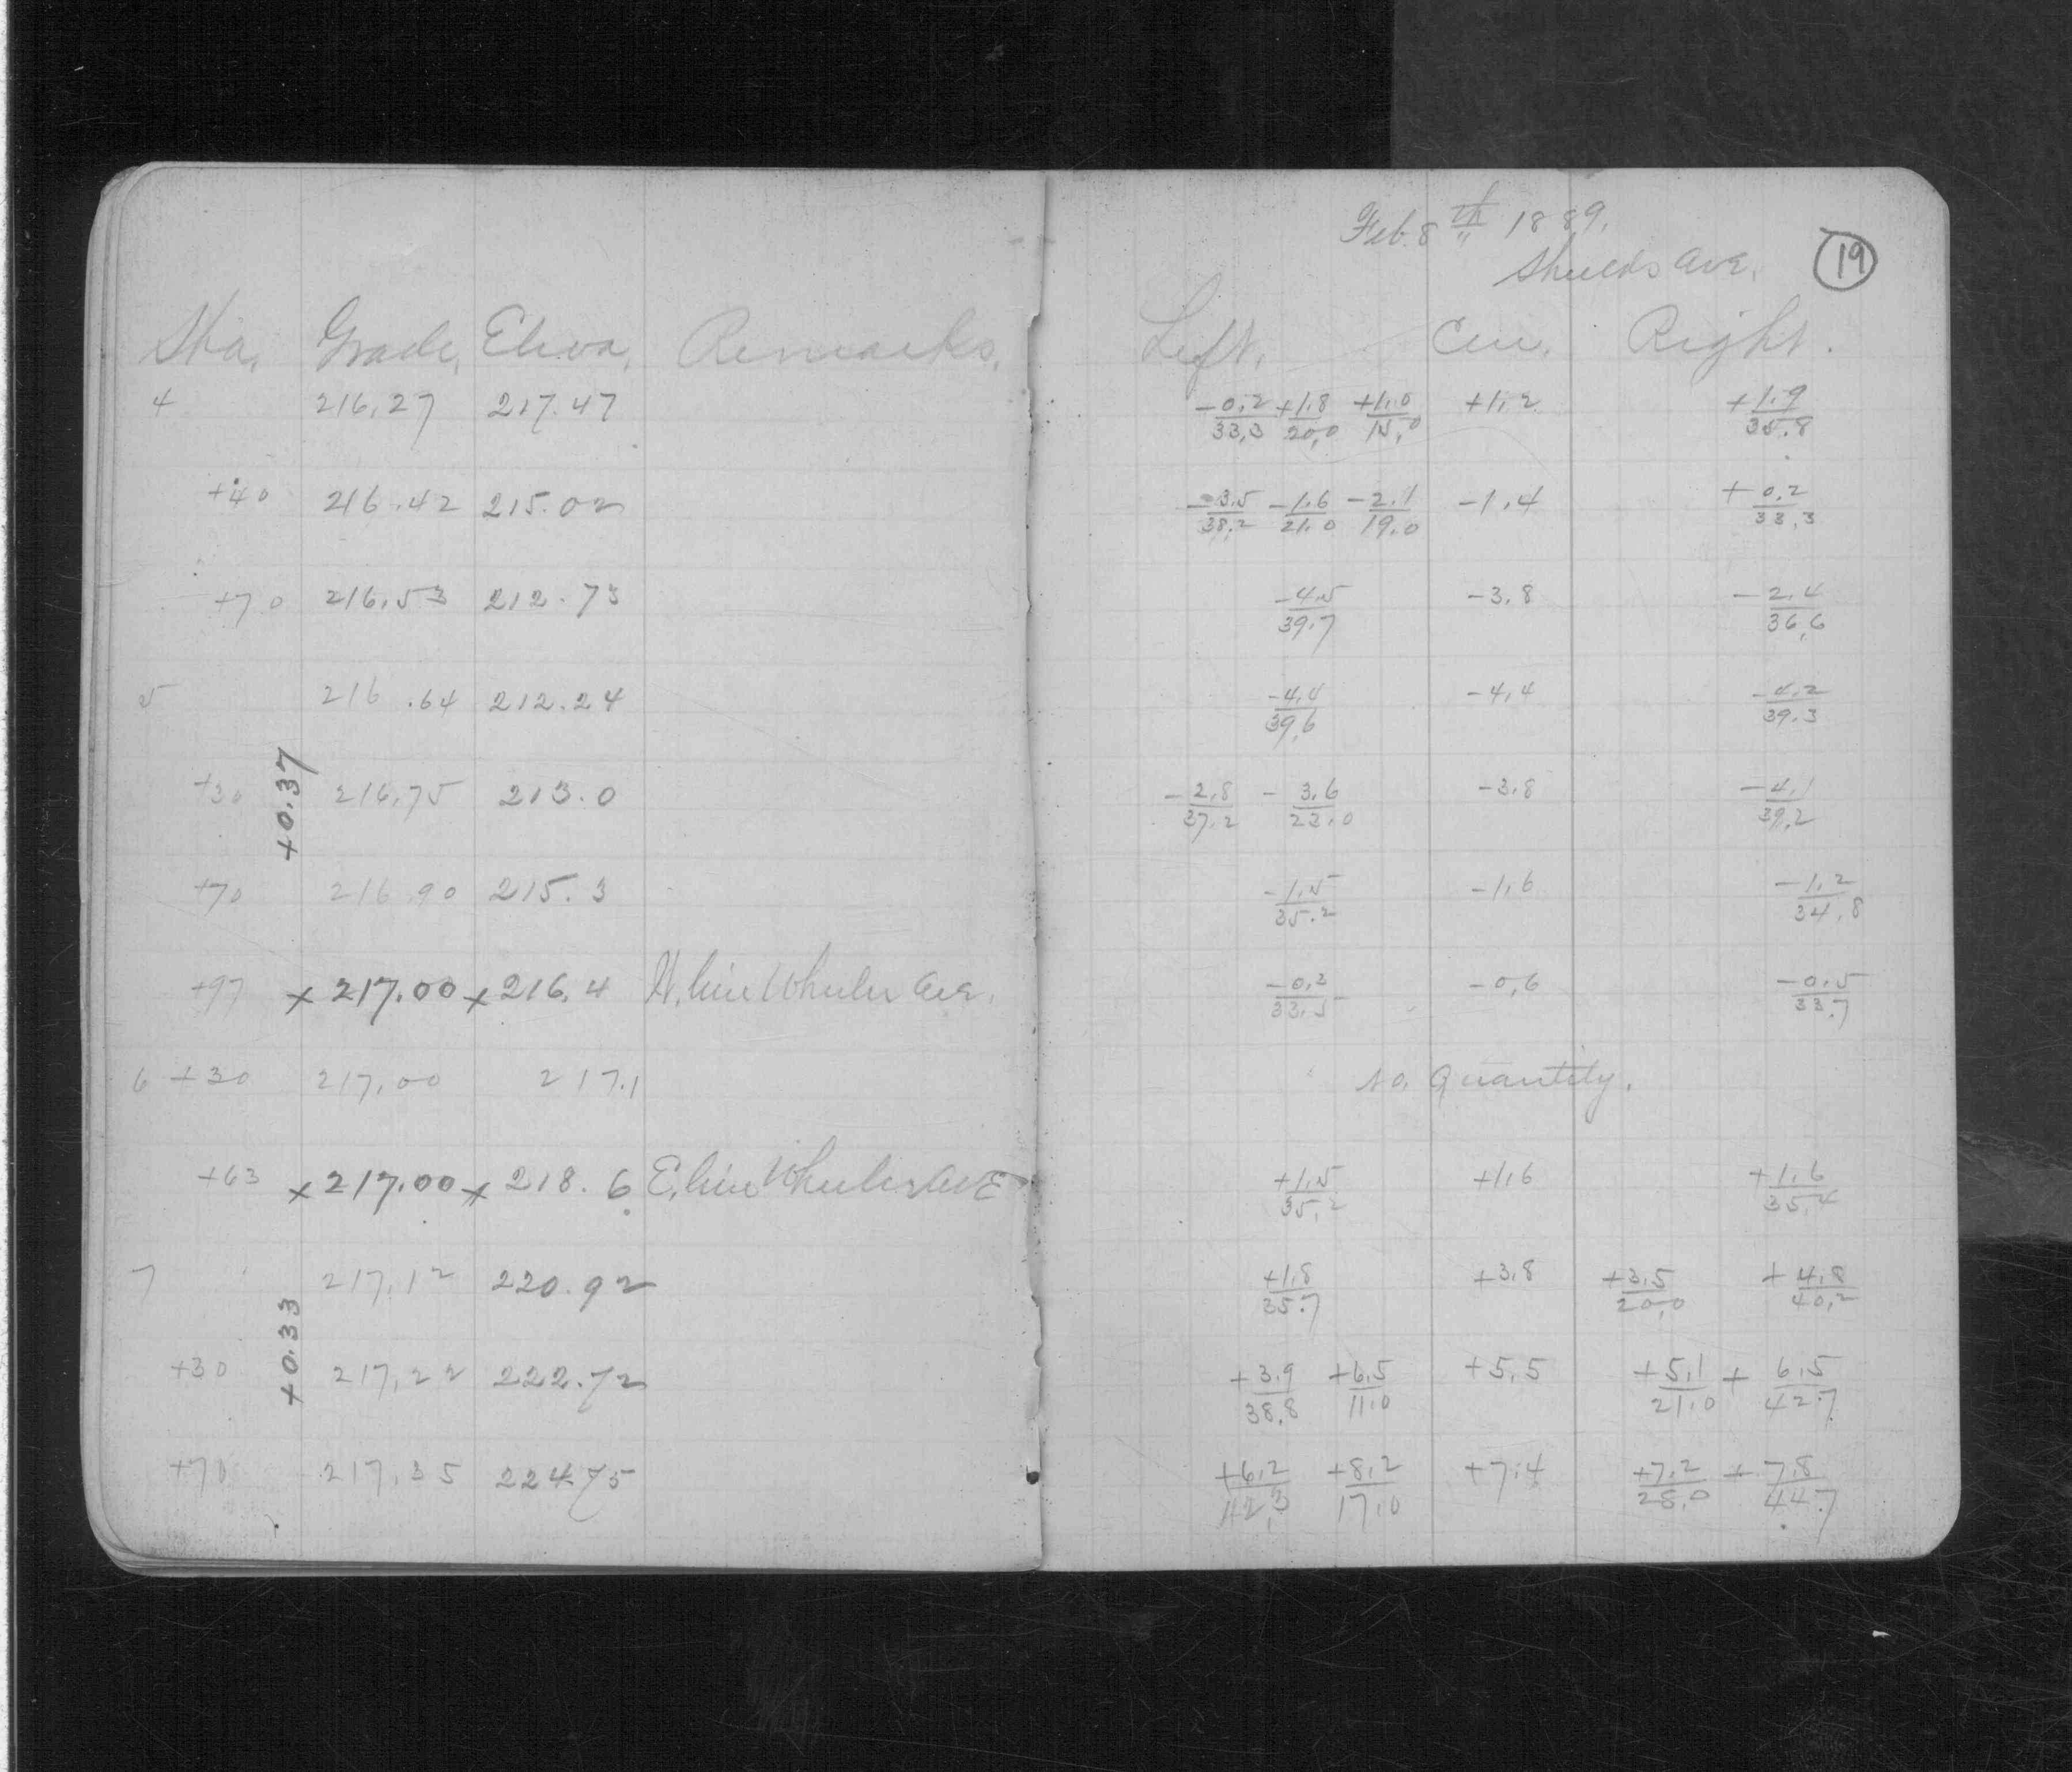 Feb. 8th 1889.
Shields Ave.
19
Sta. Grade, Eleva, Remarks, Left, Cen, Right.
4 216.27 217.47 -0.2/33.3 +1.8/20.0 +1.0/15.0 +1.2 +1.9/35.8
+40 216.42 215.02 -3.5/38.2 -1.6/21.0 -2.1/19.0 -1.4 +0.2/33.3
+70 216.53 212.73 -4.5/39.7 -3.8 -2.4/36.6
5 216.64 212.24 -4.4/39.6 -4.4 -4.2/39.3
+0.37
+30 216.75 213.0 -2.8/37.2 -3.6/23.0 -3.8 -4.1/39.2
+70 216.90 215.3 -1.5/35.2 -1.6 -1.2/34.8
+97 x 217.00 x 216.4 W. line Wheeler Ave. -0.3/33.5 -0.6 -0.5/33.7
6 +30 217.00 217.1 no. Quantity.
+63 x 217.00 x 218.6 E. line Wheeler AVE +1.5/35.2 +1.6 +1.6/35.4
7 217.12 220.92 +1.8/35.7 +3.8 +3.5/20.0 +4.8/40.2
+0.33
+30 217.22 222.72 +3.9/38.8 +6.5/11.0 +5.5 +5.1/21.0 +6.5/42.7
+70 217.35 224.75 +6.2/42.3 +8.2/17.0 +7.4 +7.2/28.0 +7.8/44.7